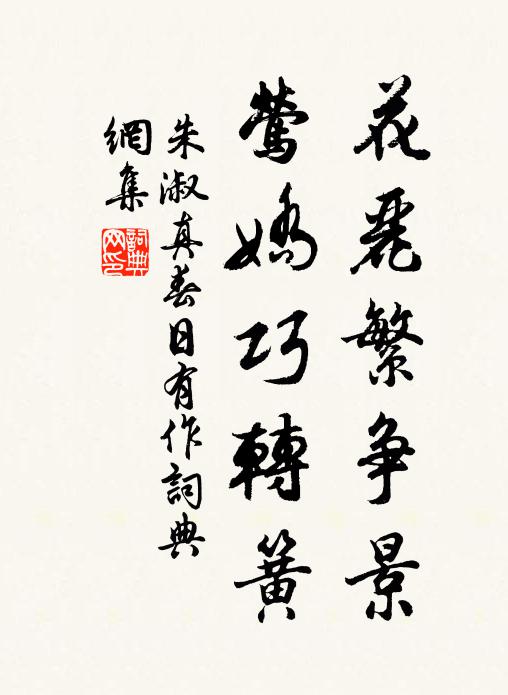 花麗繁争景
鶯嬌巧轉簧
朱淑真春日有作詞典
網集
詞典
网印